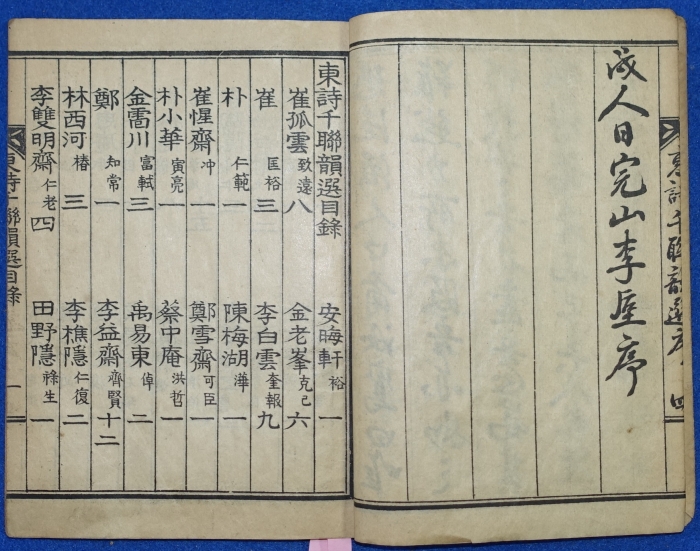 人日完山李序
東詩千聯韻選目錄
安晦軒裕一
崔孤雲致遠八
金老峯克己六
崔匡裕三
李白雲奎報九
朴仁範一
陳梅湖澕一
崔惺齋冲一
鄭雪齋可臣一
朴小華寅亮一
蔡中庵洪哲一
金雷川富軾三
禹易東倬二
鄭知常一
李益齋齊賢十二
林西河椿三
李樵隱仁復二
李雙明齋仁老四
田野隱祿生一
東詩千聯韻選目錄
一
東詩千聯韻選序
四